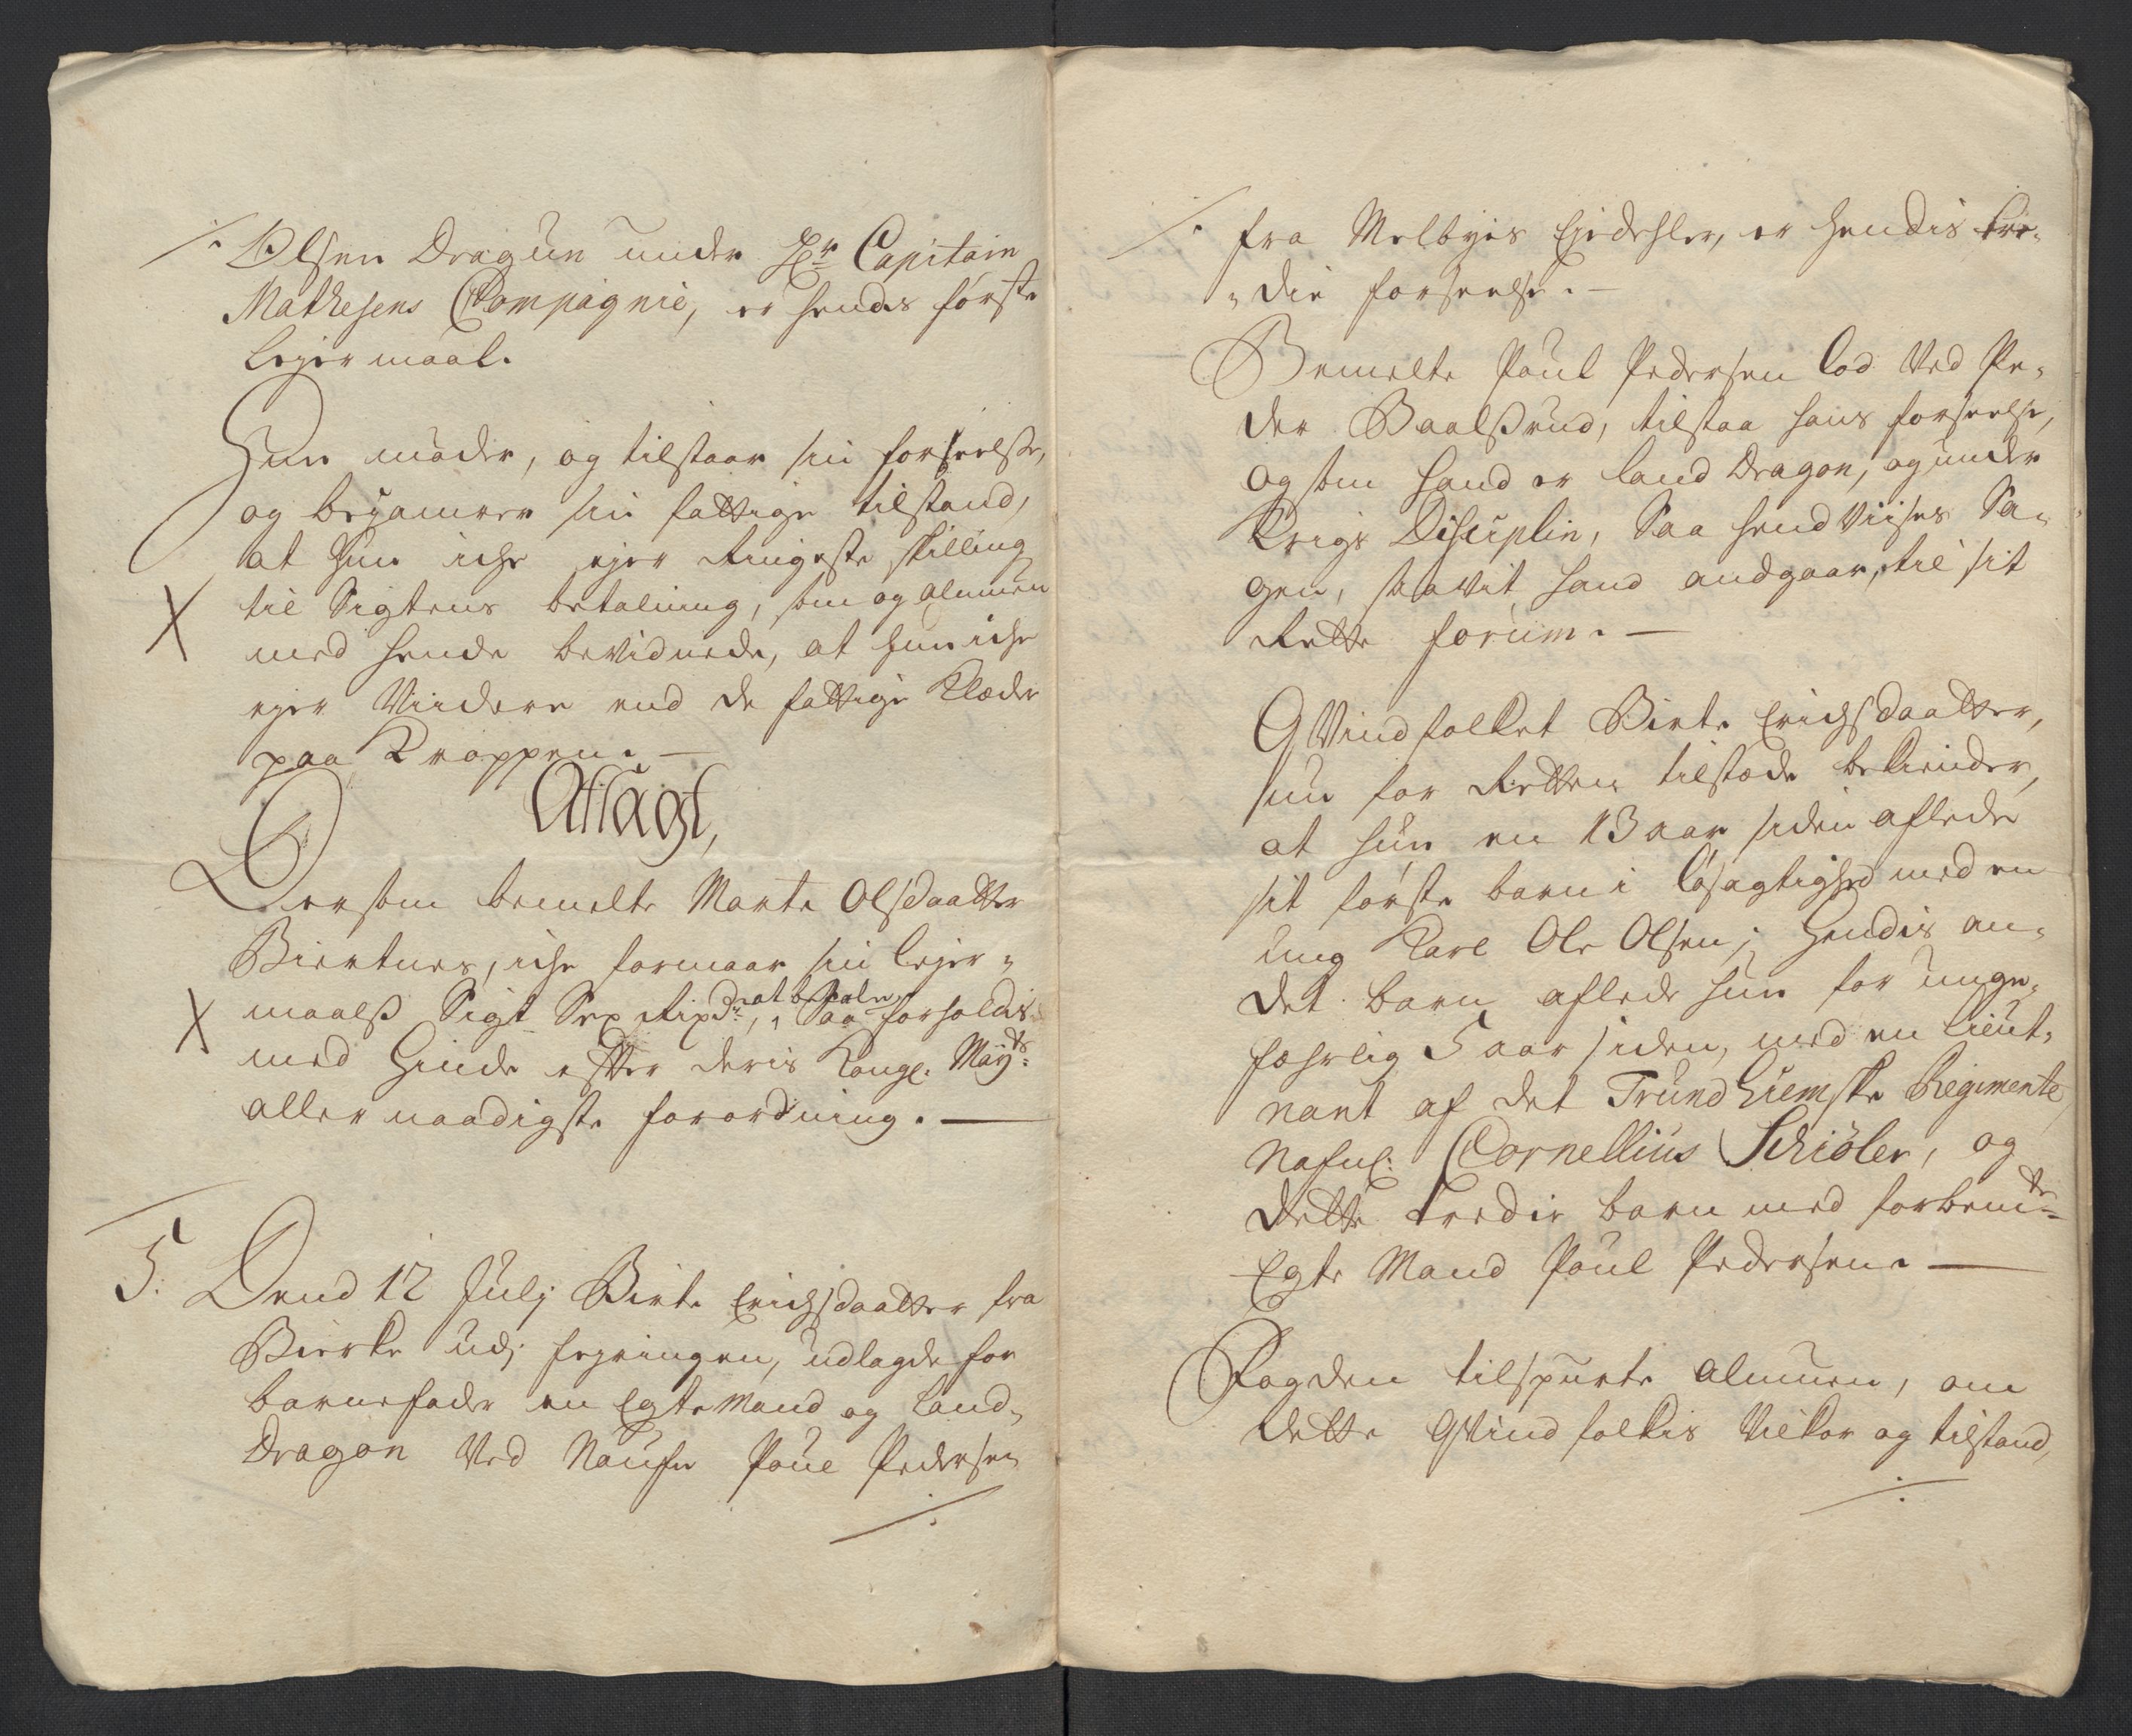 ⁒ Olsen Dragun under Hr Capitain
Mathesens Compagnie, er hendes første
lejermaal.
Hun møder, og tilstaar sin forseelse,
og bejamrer sin fattige tilstand,
at hun iche ejer ringeste skilling
X til Sigtens betalning, som og almuen
med hende bevidnede, at hun iche
ejer Viidere end de fattige Klæder
paa Kroppen. —
Afsagt,
Dersom bemelte Marte Olsdaatter
Biertnes, iche formaar sin lejer-
X maalß Sigt Sex Rixdr, at betale, Saa forholdis
med Hinde efter deris Kongl: Mayts:
aller naadigste forordning. —
5. Dend 12 Julj Birte Erichsdaatter fra
Bierke udj Feyringen, udlagde for
barnefader en Egte Mand og Land-
Dragon Ved Naufn Poul Pedersen
⁒
⁒ fra Melbyes Ejedehler, er hendis tre-
die forseelse. —
Bemelte Poul Pedersen lod Ved Pe-
der Baalßrud, tilstaa hans forseelse,
og som hand er land Dragon, og under
Krigs Disciplin, Saa hend Viises Sa-
gen, saavit hand andgaar, til sit
Rette forum. —
Qvindfolket Birte Erichsdaatter,
nu for Retten tilstæde bekiender,
at hun en 13 aar siden aflede
sit første barn i løsagtighed med en
ung Karl Ole Olsen; Hendis an-
det barn aflede hun for unge-
fehrlig 5 aar siden, med en Lieut-
nant af det Trundhiemske Regimente
Nafnl: Cornellius Schiøler, og
dette tredie barn med forbemte
Egte Mand Poul Pedersen. —
Fogden tilspurte almuen, om
dette Qvindfolkis Vilkor og tilstand,
⁒